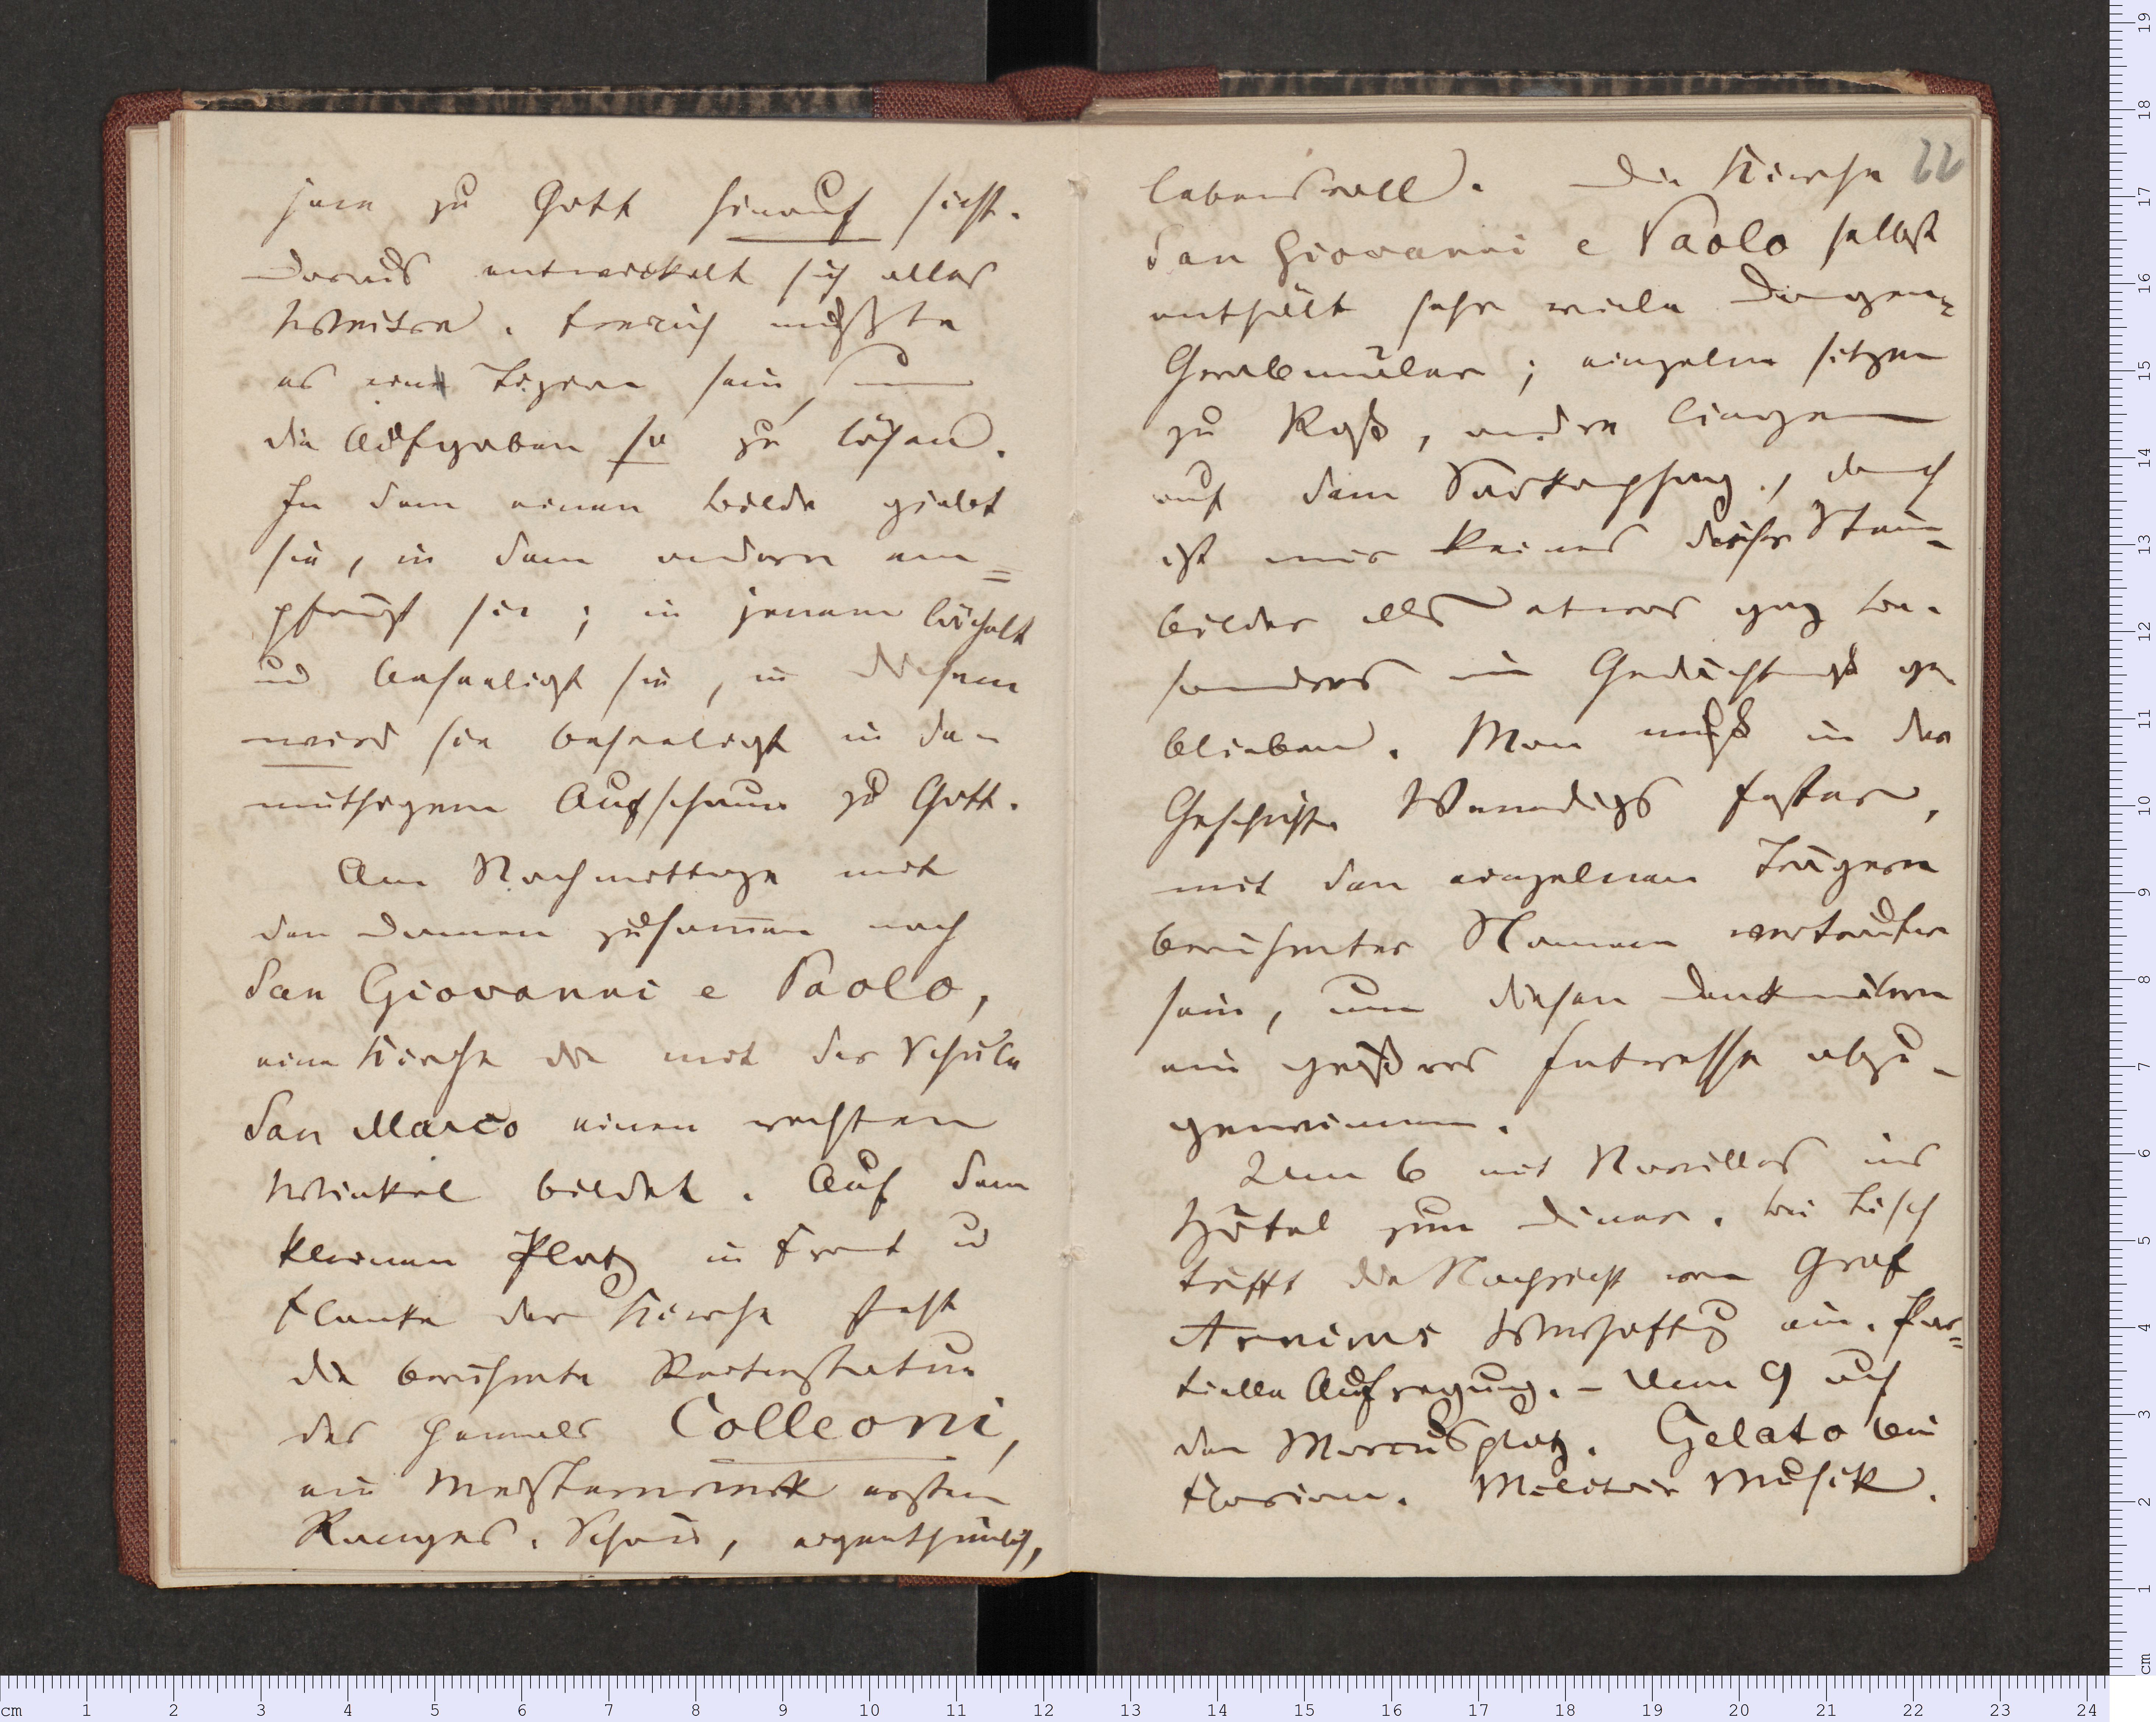 jene zu Gott hinauf sieht.
Daraus entwickelt sich alles
Weitre. Freilich mußte
es ein Tizian sein, um
die Aufgaben so zu lösen.
In dem einen Bilde giebt
sie, in dem andern em=
pfängt sie; in jenem lächelt
und beseeligt sie, in diesem
wird sie beseeligt in de-
muthigem Aufschaun zu Gott.
Am Nachmittage mit
den Damen zusammen nach
San Giovanni e Paolo,
eine Kirche die mit der Schule
San Marco einen rechten
Winkel bildet. Auf dem
kleinen Platz in Front u
Flanke der Kirche steht
die berühmte Reiterstatue
des Generals Colleoni,
ein Meisterwerk ersten
Ranges. Schön, eigenthümlich,
22
lebensvoll. Die Kirche
San Giovanni e Paolo selbst
enthält sehr viele Dogen-
Grabmäler; einzelne sitzen
zu Roß, andre liegen
auf dem Sarkophag, doch
ist mir keines dieser Stein-
bilder als etwas ganz be-
sondres im Gedächtniß ge
blieben. Man muß in der
Geschichte Venedigs fester,
mit den einzelnen Trägern
berühmter Namen vertrauter
sein, um diesen Denkmälern
ein größres Interesse abzu-
gewinnen.
Um 6 mit Noville's ins
Hôtel zum Diner. Bei Tisch
trifft die Nachricht von Graf
Arnims Verhaftung ein. Par=
tielle Aufregung. – Um 9 auf
den Marcusplatz. Gelato bei
Florian. Militair Musik.